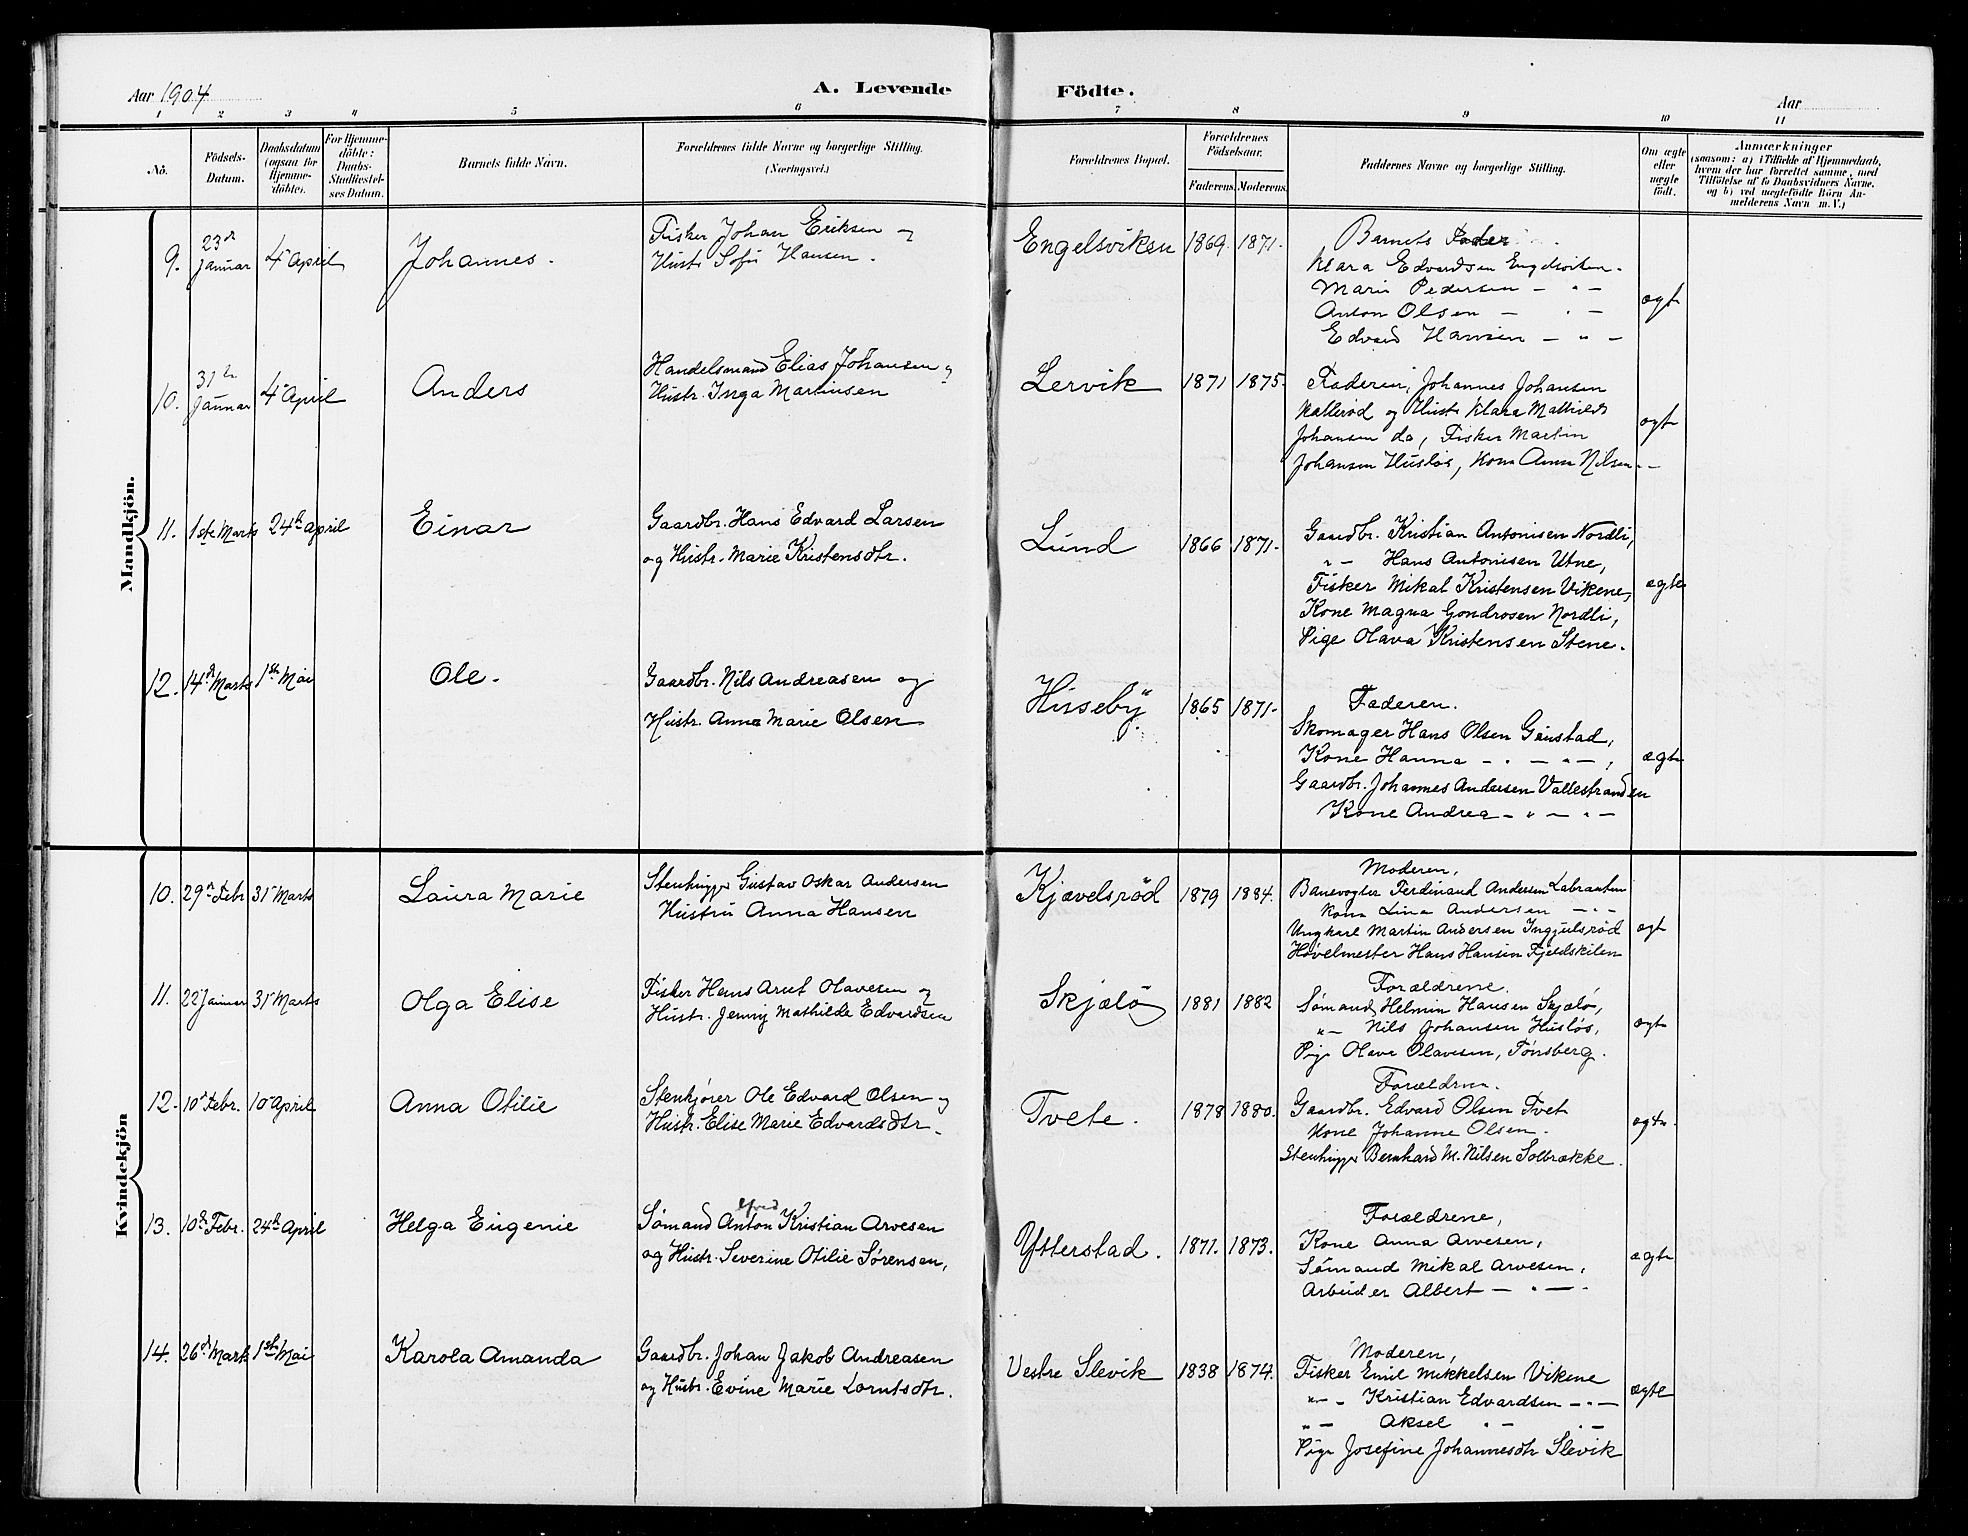 Aar 1904
A. Levende
Födte.
Aar
1 2 3 4 5 6 7 8 9 10 11
No.
Födsels-
Datum.
Daabsdatum
(ogsaa for
Hjemme-
döbte).
For Hjemme-
döbte:
Daabs-
Stadfæstel-
ses Datum.
Barnets fulde Navn.
Forældrenes fulde Navne og borgerlige Stilling.
(Næringsvei.)
Forældrenes Bopæl.
Forældrenes
Födselsaar.
Faderens. Moderens.
Faddernes Navne og borgerlige Stilling.
Om ægte
eller
uægte
födt.
Anmærkninger
(saasom: a) i Tilfælde af Hjemmedaab,
hvem der har forrettet samme, med
Tilföielse af to Daabsvidners Navne,
og b) ved uægtefödte Börn An-
melderens Navn m. V.)
Mandkjön.
9. 23de Januar 4de April Johannes.
Fisker Johan Eriksen og
Hustr. Sofie Hansen.
Engelsviken 1869. 1871.
Barnets Fader
Klara Edvardsen Engelsviken.
Marie Pedersen — " —
Anton Olsen — " —
Edvard Hansen — " —
ægte
10. 31te Januar 4de April Anders
Handelsmand Elias Johansen og
Hustr. Inga Martinsen
Lervik 1871 1875.
Faderen, Johannes Johansen
Kallerød og Hustr. Klara Mathilde
Johansen do, Fisker Martin
Johansen Husløs, Kone Anna Nilsen —
ægte
11. 1ste Marts 24de April Einar
Gaardbr. Hans Edvard Larsen
og Hustr. Marie Kristensdtr.
Lund 1866 1871.
Gaardbr. Kristian Antonisen Nordli,
" — Hans Antonisen Utne,
Fisker Mikal Kristensen Vikene,
Kone Magna Gondrosen Nordli,
Pige Olava Kristensen Stene.
ægte
12. 14de Marts 1ste Mai Ole.
Gaardbr. Nils Andreasen og
Hustr. Anna Marie Olsen
Husebÿ 1865 1871.
Faderen.
Skomager Hans Olsen
Kone Hanna — " — " —,
Gaardbr. Johannes Andersen Vallestranden
Kone Andrea — " — " —
ægte
Kvindekjön
10. 29de Febr. 31te Marts Laura Marie
Stenhugger Gustav Oskar Andersen
Hustru Anna Hansen
Kjævelsrød 1879 1884.
Moderen,
Banevogter Ferdinand Andersen
Kone Lina Andersen — " —
Ungkarl Martin Andersen Ingjulsrød
Høvelmester Hans Hansen Fjeldskilen
ægt
11. 22de Januar 31te Marts Olga Elise
Fisker Hans Arnt Olavesen og
Hustr. Jenny Mathilde Edvardsen
Skjælø 1881 1882
Forældrene.
Sømand Helmin Hansen Skjælø,
" — Nils Johansen Husløs,
Pige Olava Olavesen, Tønsberg.
ægte
12. 10de Febr. 10de April Anna Otilie
Stenkjører Ole Edvard Olsen og
Hustr. Elise Marie Edvardsdtr.
Tvete. 1878 1880.
Forældrene.
Gaardbr. Edvard Olsen Tvet
Kone Johanne Olsen.
Stenhugger Bernhard M. Nilsen Solbrække.
ægte.
13. 10de Febr. 24de April Helga Eugenie
Alfred
Sømand Anton Kristian Arvesen
og Hustr. Severine Otilie Sørensen,
Ytterstad. 1871. 1873.
Forældrene,
Kone Anna Arvesen,
Sømand Mikal Arvesen,
Arbeider Albert — " —
ægte
14. 26de Marts 1ste Mai Karola Amanda
Gaardbr. Johan Jakob Andreasen
og Hustr. Evine Marie Lorntsdtr.
Vestre Slevik 1838 1874.
Moderen,
Fisker Emil Mikkelsen Vikene
" — Kristian Edvardsen — " —
" — Aksel " — " —
Pige Josefine Johannesdtr Slevik
ægte